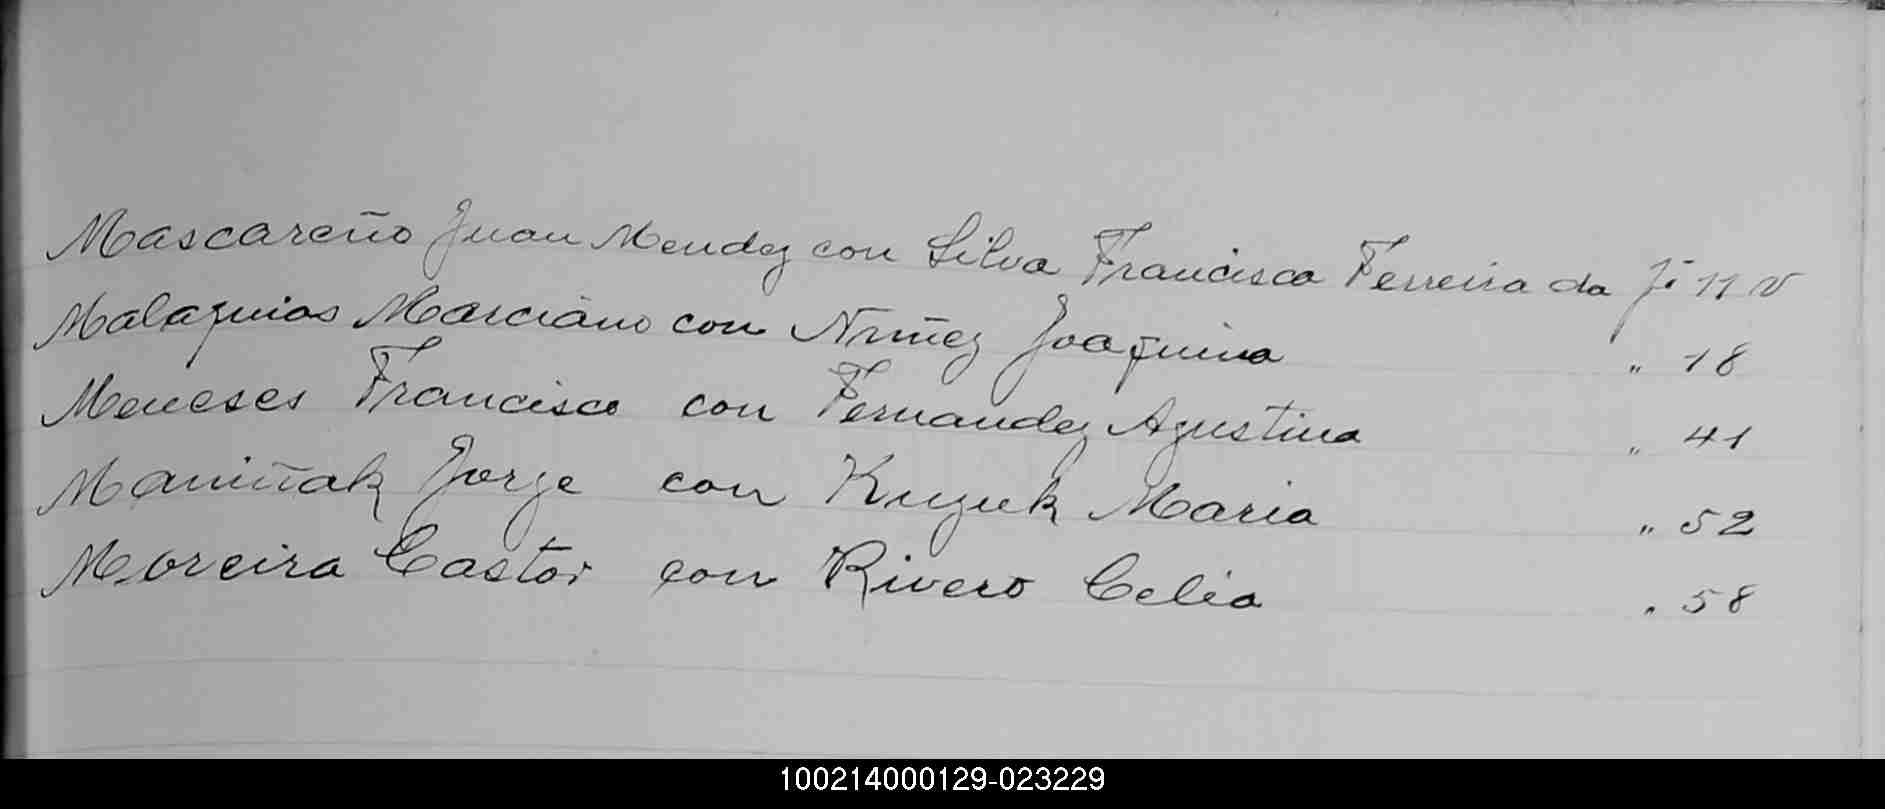 Mascareño Juan Mendez con Silva Francisca Ferreira da fº 11 v
Malaquias Marciano con Nuñez Joaquina " 18
Meneses Francisco con Fernandez Agustina " 41
Maniñak Jorge con Kuzuk Maria " 52
Moreira Castor con Rivero Celia " 58
100214000129-023229